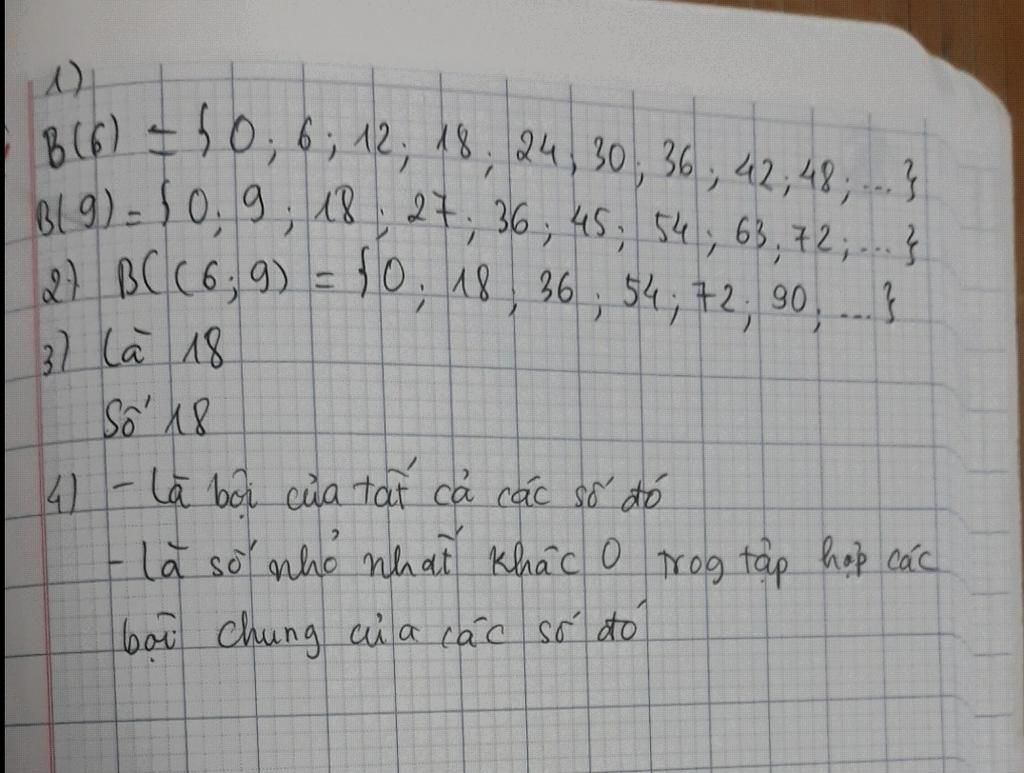 1)
B(6) = { 0 ; 6 ; 12 ; 18 ; 24 ; 30 ; 36 ; 42 ; 48 ; ... }
B(9) = { 0 ; 9 ; 18 ; 27 ; 36 ; 45 ; 54 ; 63 ; 72 ; ... }
2) BC(6 ; 9) = { 0 ; 18 ; 36 ; 54 ; 72 ; 90 ; ... }
3) Là 18
Số 18
4) - Là bội của tất cả các số đó
- Là số nhỏ nhất khác 0 trog tập hợp các
bội chung của các số đó